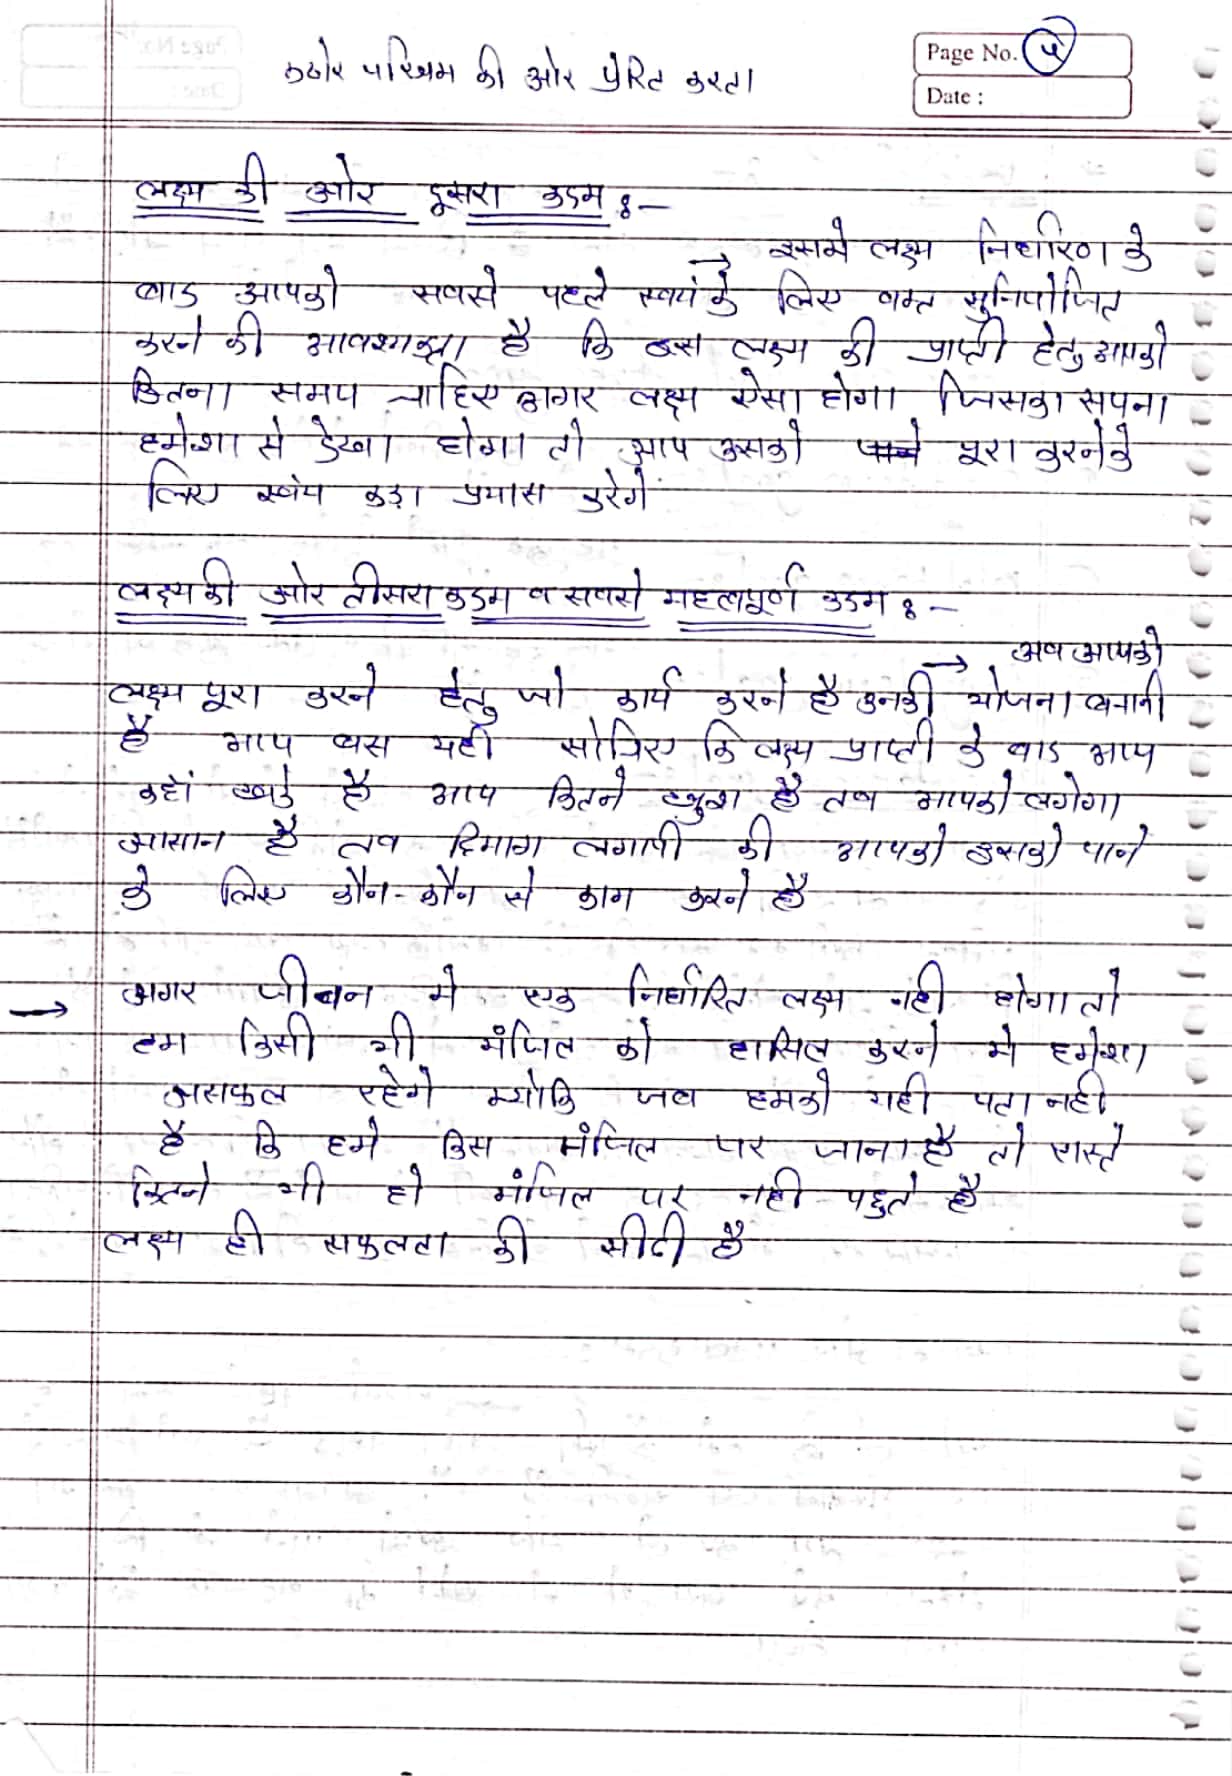 कठोर परिश्रम की ओर प्रेरित करता
Page No. ५
Date :
लक्ष्य की ओर दूसरा कदम :-
→ इसमे लक्ष्य निर्धारण के
बाद आपको सबसे पहले स्वयं के लिए वक्त सुनियोजित
करने की आवश्यकता है कि इस लक्ष्य की प्राप्ती हेतु आपको
कितना समय चाहिए अगर लक्ष्य ऐसा होगा जिसका सपना
हमेशा से देखा होगा तो आप उसको पूरा करने के
लिए स्वंय कड़ा प्रयास करेगें
लक्ष्य की ओर तीसरा कदम व सबसे महत्वपूर्ण कदम :-
→ अब आपको
लक्ष्य पूरा करने हेतु जो कार्य करने है उनकी योजना बनानी
है आप बस यही सोचिए कि लक्ष्य प्राप्ती के बाद आप
कहां खड़े है आप कितने खुश है तब आपको लगेगा
आसान है तब दिमाग लगायी की आपको इसको पाने
के लिए कौन-कौन से काम करने है
→ अगर जीवन मे एक निर्धारित लक्ष्य नही होगा तो
हम किसी भी मंजिल को हासिल करने मे हमेशा
असफल रहेगे क्योकि जब हमको यही पता नही
है कि हमे किस मंजिल पर जाना है तो रास्ते
कितने भी हो मंजिल पर नही पहुते है
लक्ष्य ही सफलता की सीढी है